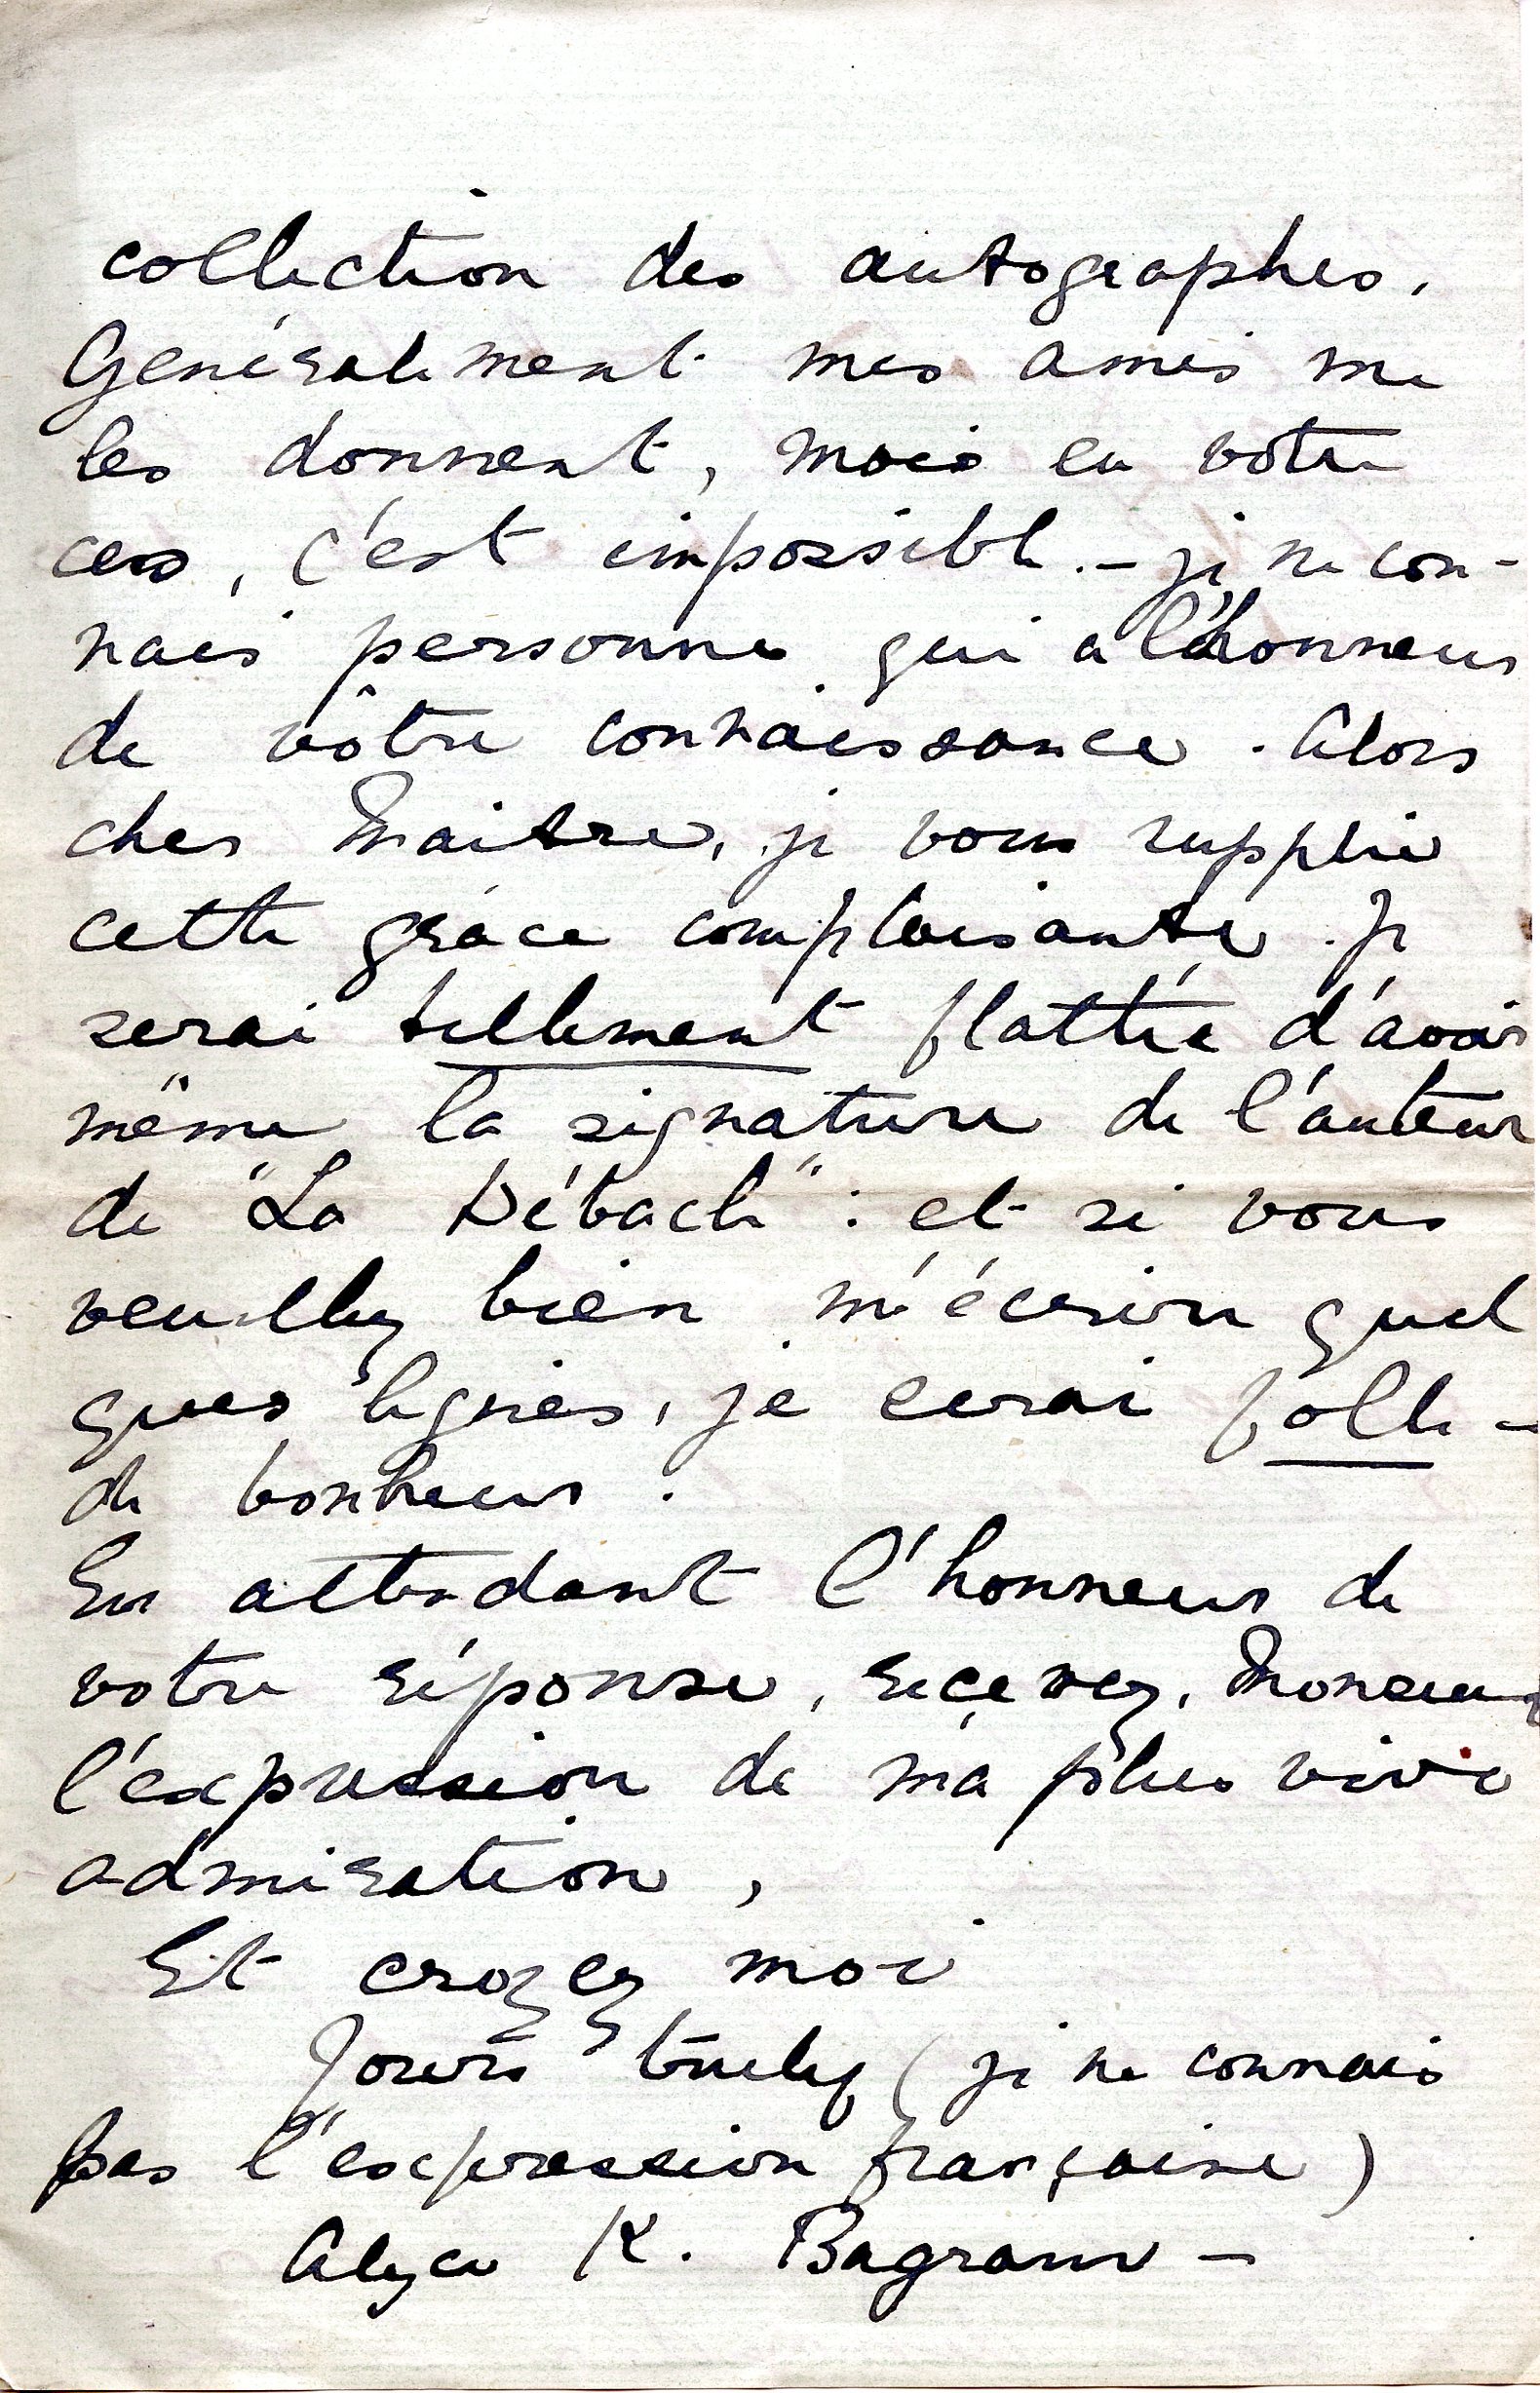 collection des autographes.
Généralement mes amis me
les donnent, mais en votre
cas, c'est impossible. - je ne con-
nais personne qui a l'honneur
de vôtre connaissance. Alors
cher Maitre, je vous supplie
cette grace complaisante. Je
serai tellement flattée d'avoir
même la signature de l'auteur
de "La Débacle" : et si vous
veuillez bien m'écrire quel
ques lignes, je serai folle -
de bonheur.
En attendant l'honneur de
votre réponse, reçevez, Monsieur
l'expression de ma plus vive
admiration,
Et croyez moi
Yours truly (je ne connais
pas l'expression française)
Alyce K. Bagram -